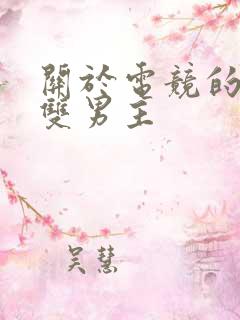 關於電競的
雙男主
吴慧